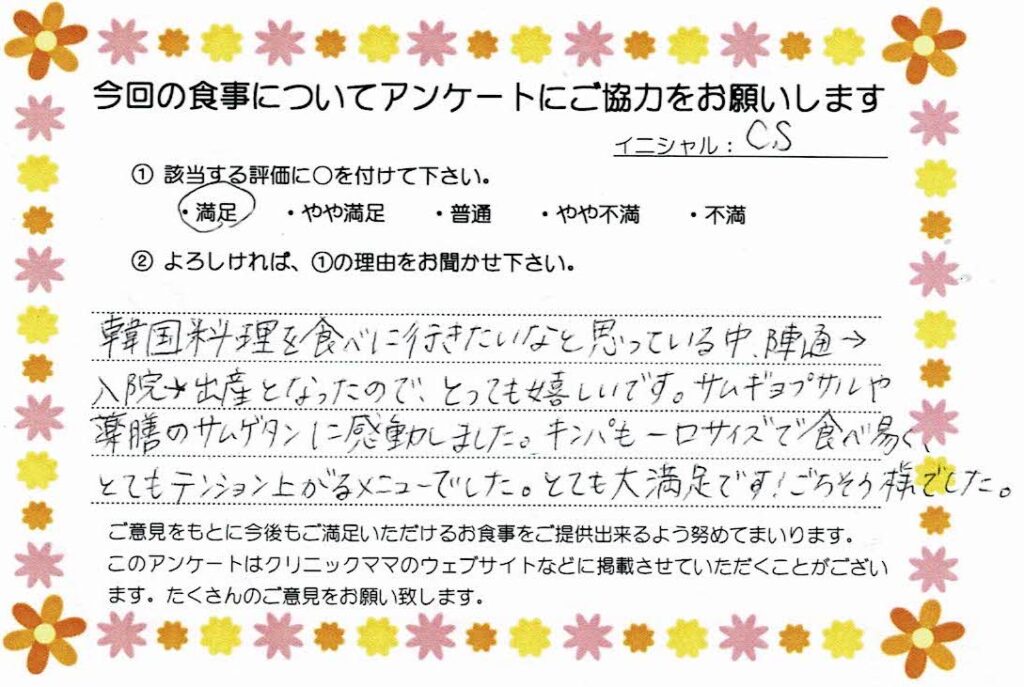 今回の食事についてアンケートにご協力をお願いします
イニシャル：C.S
① 該当する評価に○を付けて下さい。
・満足　・やや満足　・普通　・やや不満　・不満
② よろしければ、①の理由をお聞かせ下さい。
韓国料理を食べに行きたいなと思っている中、陣通→
入院→出産となったので、とっても嬉しいです。サムギョプサルや
薬膳のサムゲタンに感動しました。キンパも一口サイズで食べ易く、
とてもテンション上がるメニューでした。とても大満足です！ごちそう様でした。
ご意見をもとに今後もご満足いただけるお食事をご提供出来るよう努めてまいります。
このアンケートはクリニックママのウェブサイトなどに掲載させていただくことがござい
ます。たくさんのご意見をお願い致します。